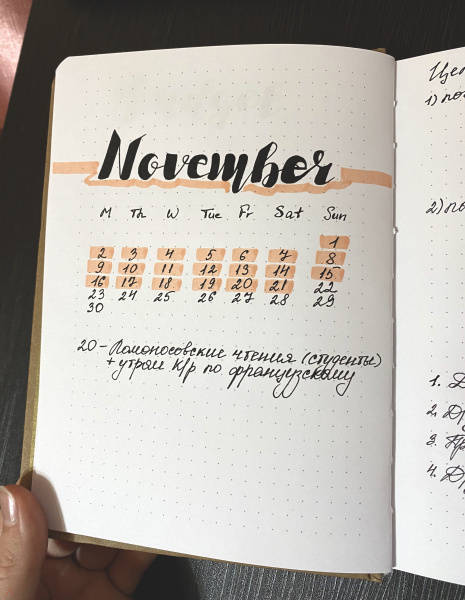 November
M Th W Tue Fr Sat Sun
1
2 3 4 5 6 7 8
9 10 11 12 13 14 15
16 17 18 19 20 21 22
23 24 25 26 27 28 29
30
20 - Ломоносовские чтения (студенты)
+ утром К/р по французскому
1)
2)
1.
2.
3.
4.